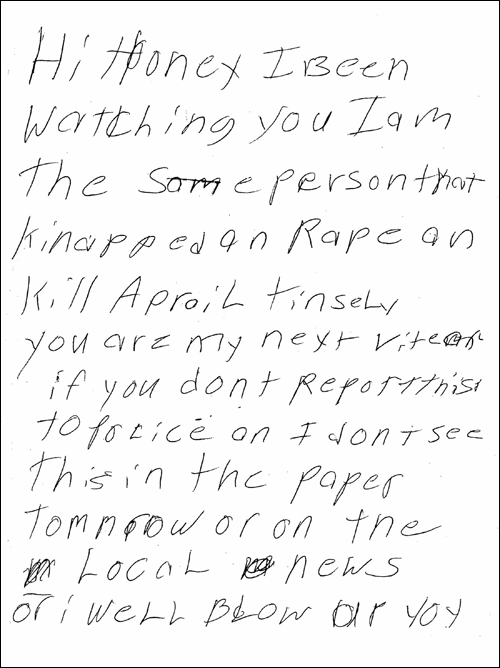 Hi Honey I Been
Watching you I am
the Same person that
kinapped an Rape an
kill Aproil tinsely
you are my next
if you dont Report this
to police an I dont see
this in the paper
tomnrrow or on the
Local news
or i well BLow